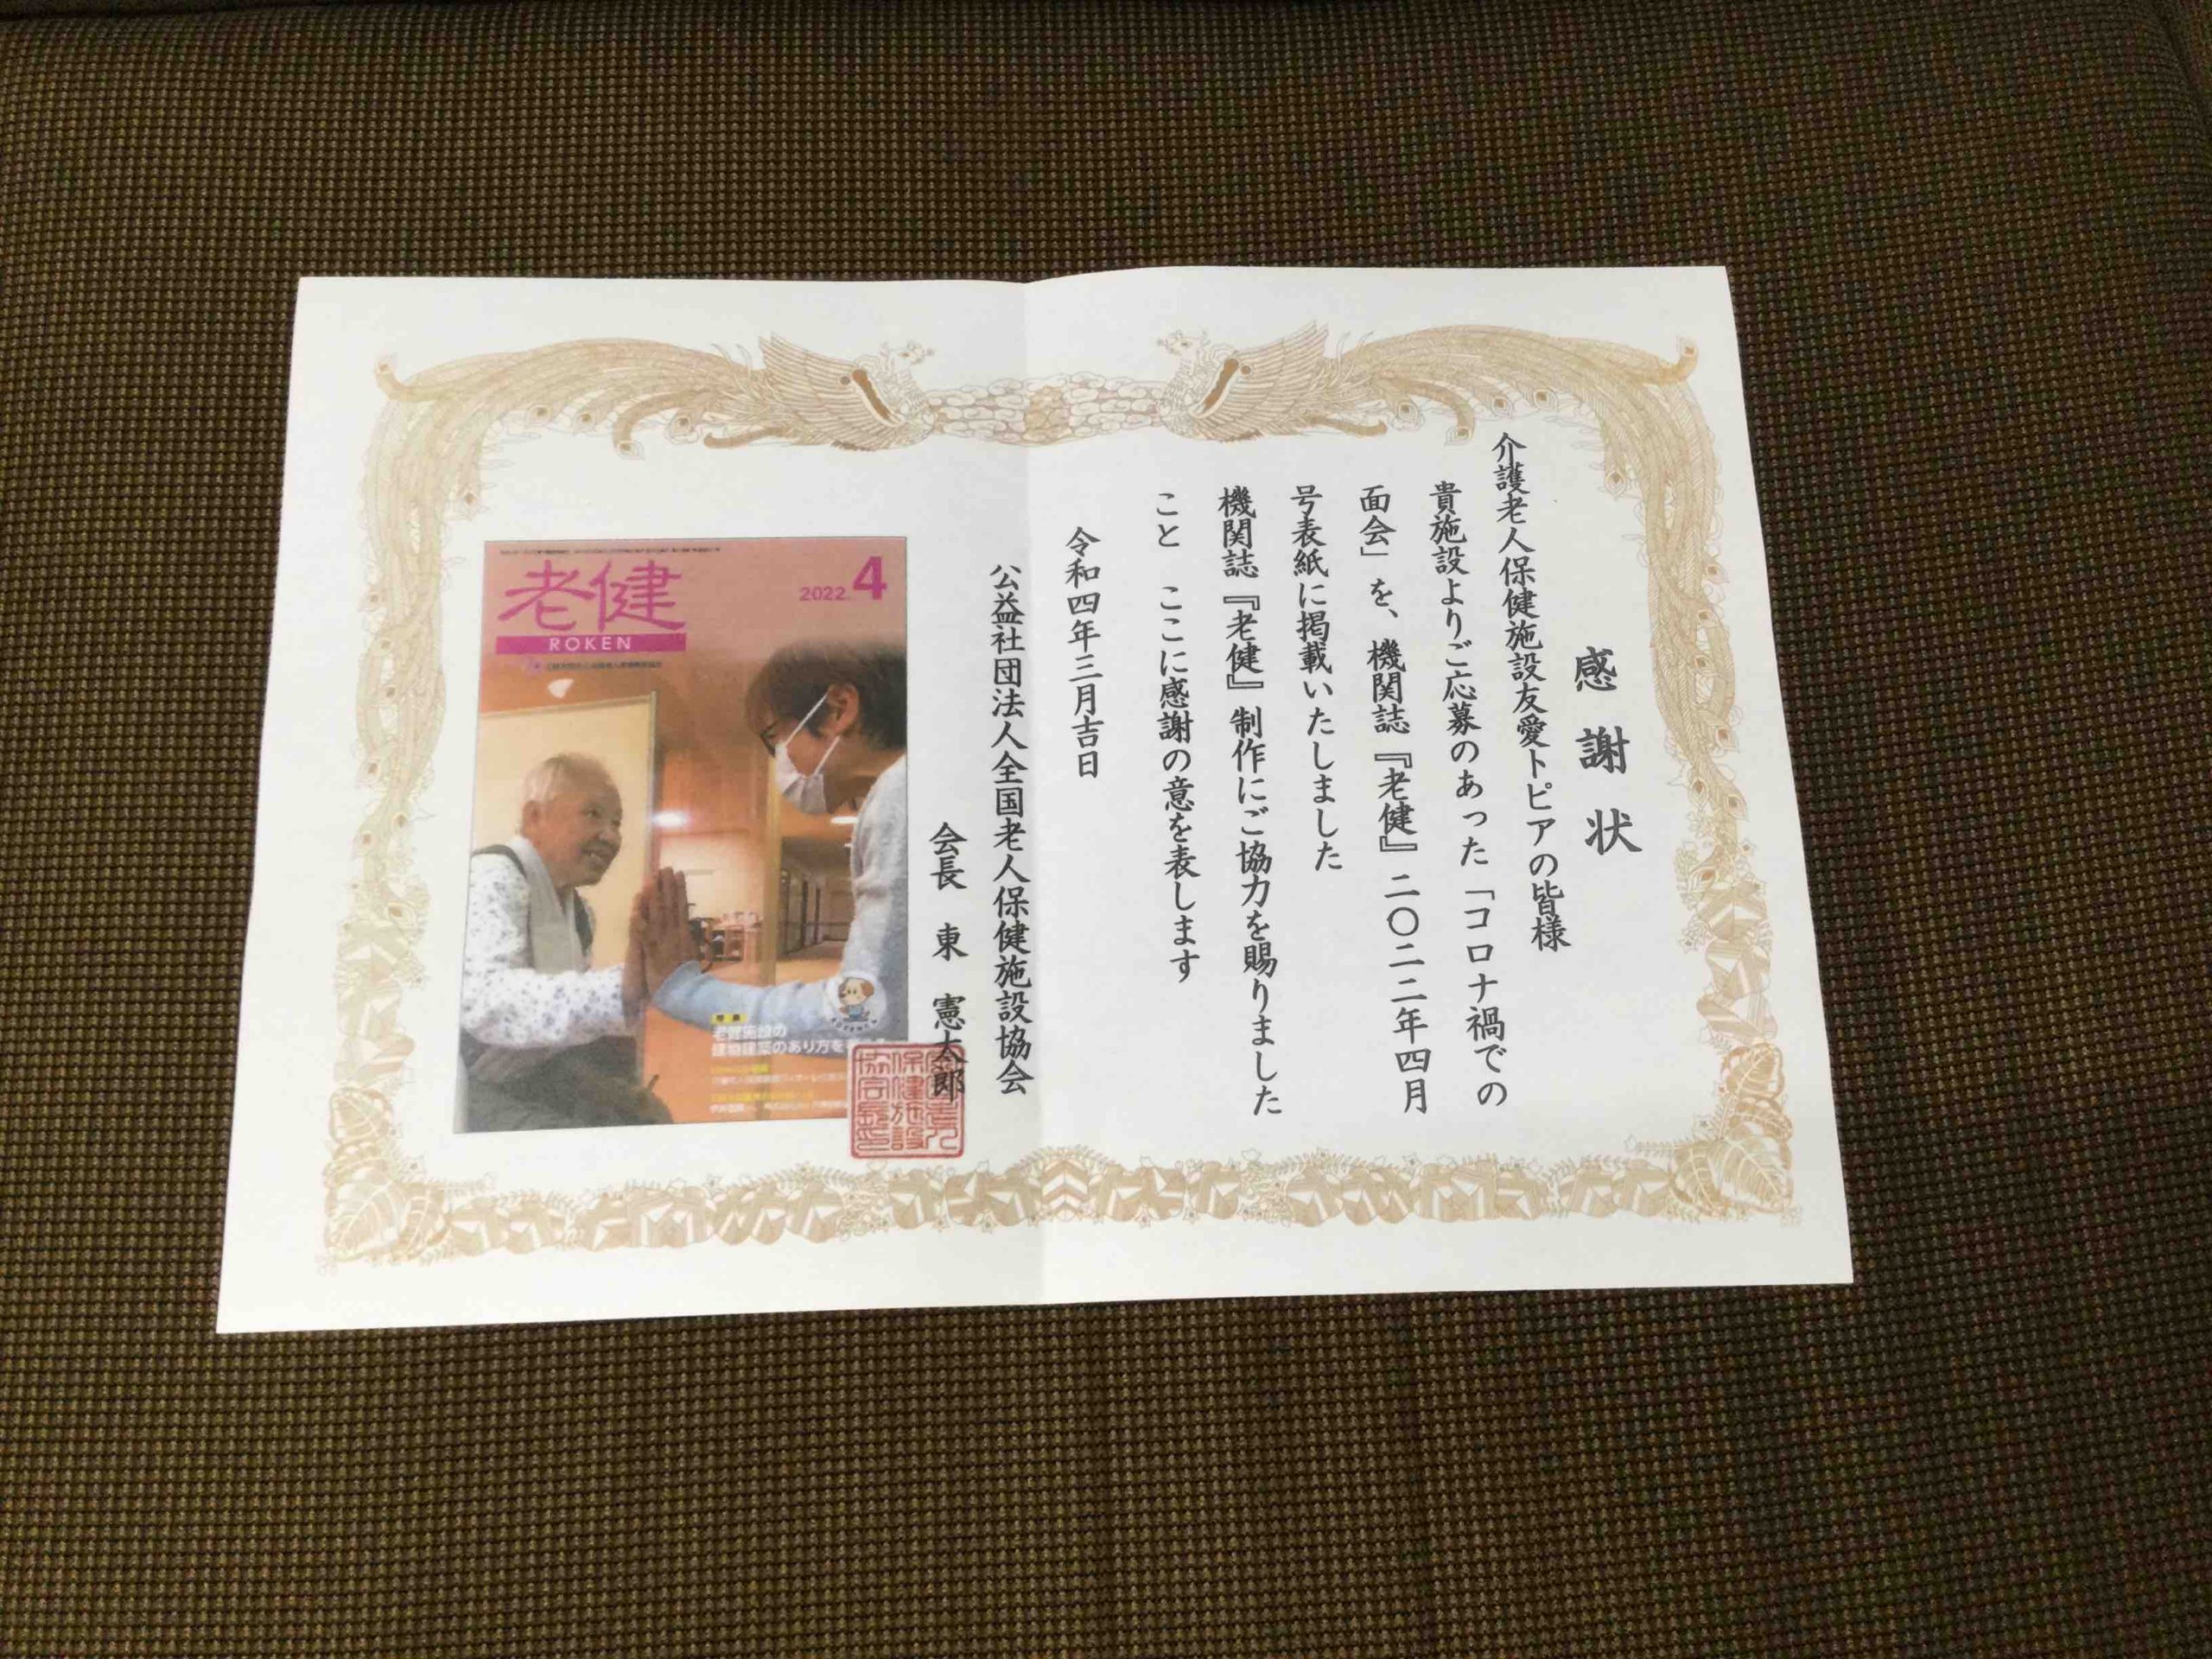 感謝状
介護老人保健施設友愛トピアの皆様
貴施設よりご応募のあった「コロナ禍での
面会」を、機関誌『老健』二〇二二年四月
号表紙に掲載いたしました
機関誌『老健』制作にご協力を賜りました
こと ここに感謝の意を表します
令和四年三月吉日
公益社団法人全国老人保健施設協会
会長 東 憲太郎
老健
ROKEN
2022.4
特集
老健施設の
建物建築のあり方を